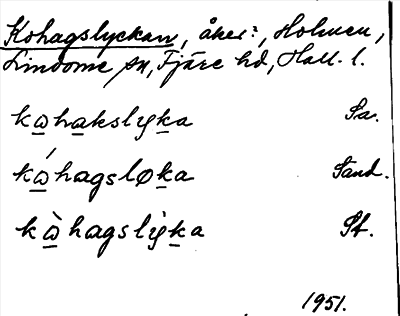 Kohagslyckan, åker:, Holmen,
Lindome sn, Fjäre hd, Hall. l.
kω̲hakslyk̲a Sa.
kώ̲hagsløk̲a Sand.
kὼ̲hagslỳk̲a St.
1951.